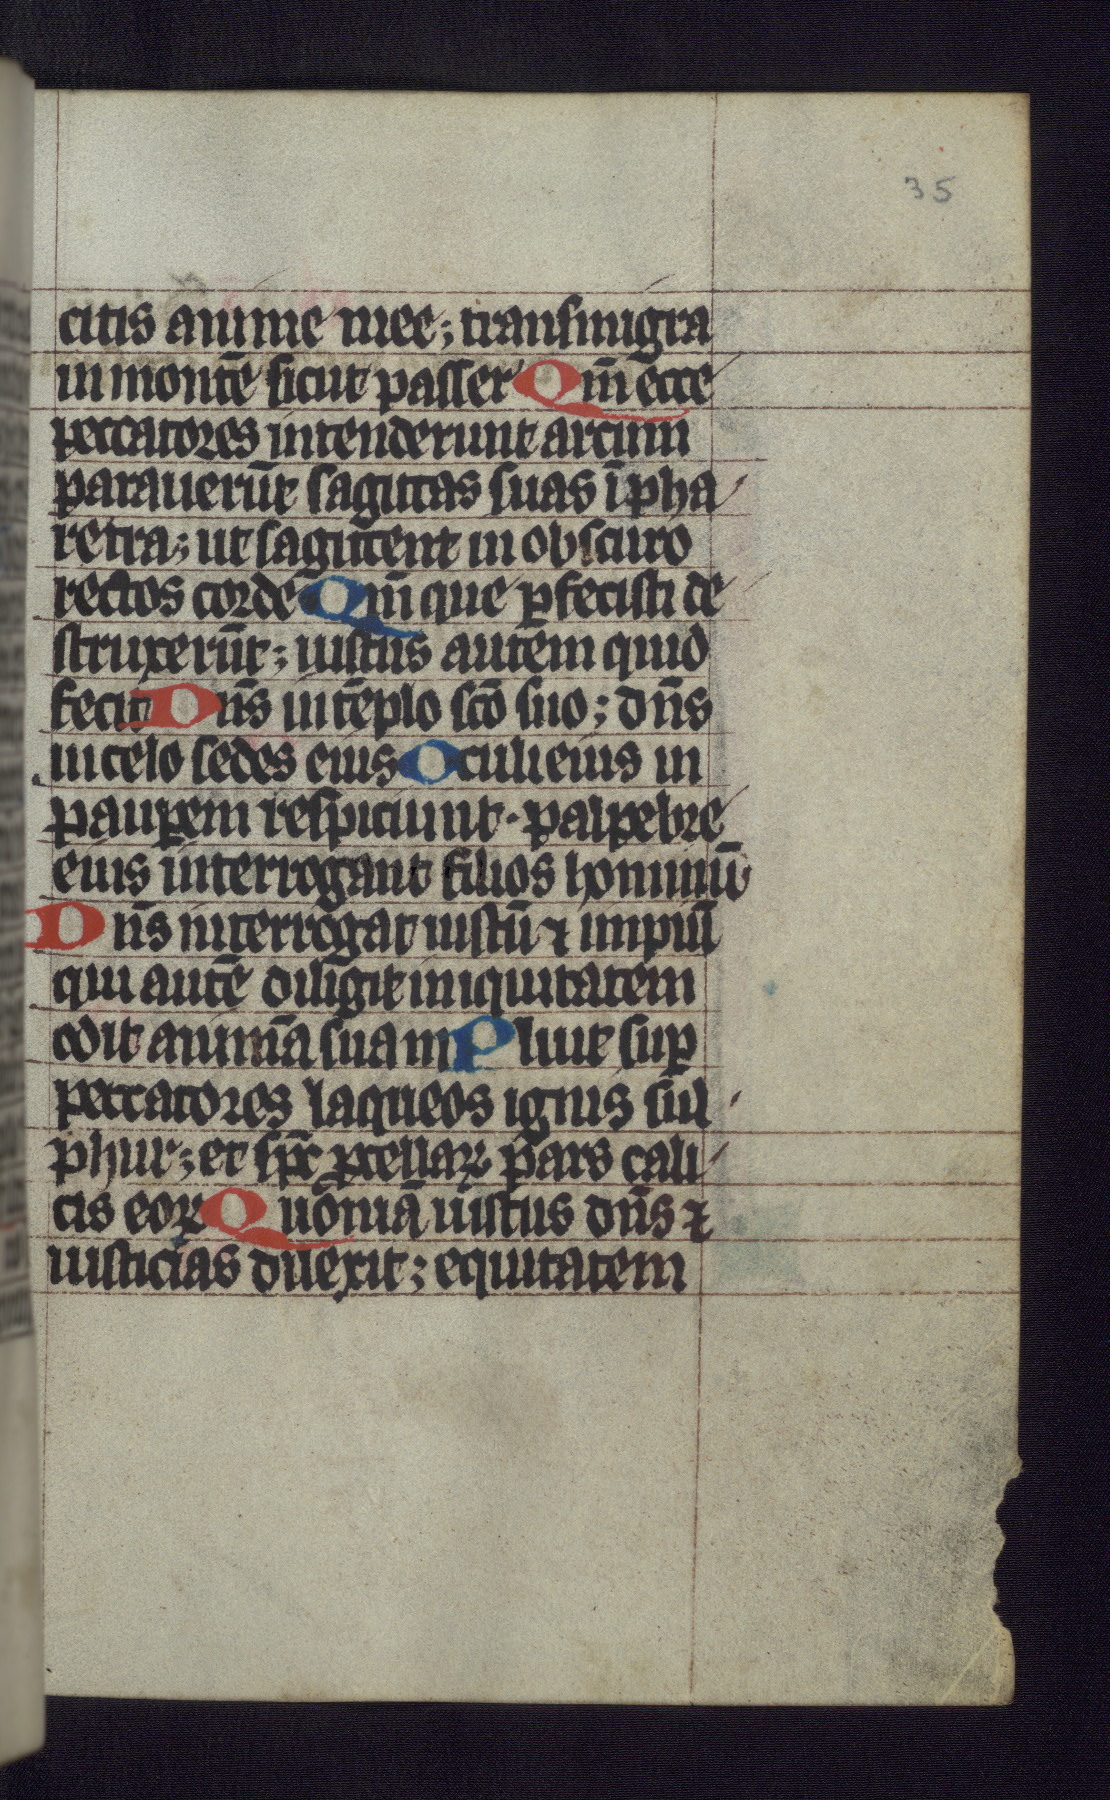 35
citis anime mee; transmigra
in montē sicut passer Qm̄ ecce
peccatores intenderunt arcum
parauerūt sagittas suas ī pha
retra; ut sagittent in obscuro
rectos corde Qm̄ que ꝑfecisti de
struxerūt; iustus autem quid
fecit Dn̄s in tēplo scō suo; dn̄s
in celo sedes eius Oculi eius in
pauꝑem respiciunt. palpebre
eius interrogant filios hominū
Dn̄s interrogat iustū ⁊ impiū
qui autē diligit iniquitatem
odit animā suam Pluit suꝑ
peccatores laqueos ignis sul
phur; et spc̄ ꝓcellaꝝ pars cali
cis eoꝝ Quoniā iustus dn̄s ⁊
iusticias dilexit; equitatem